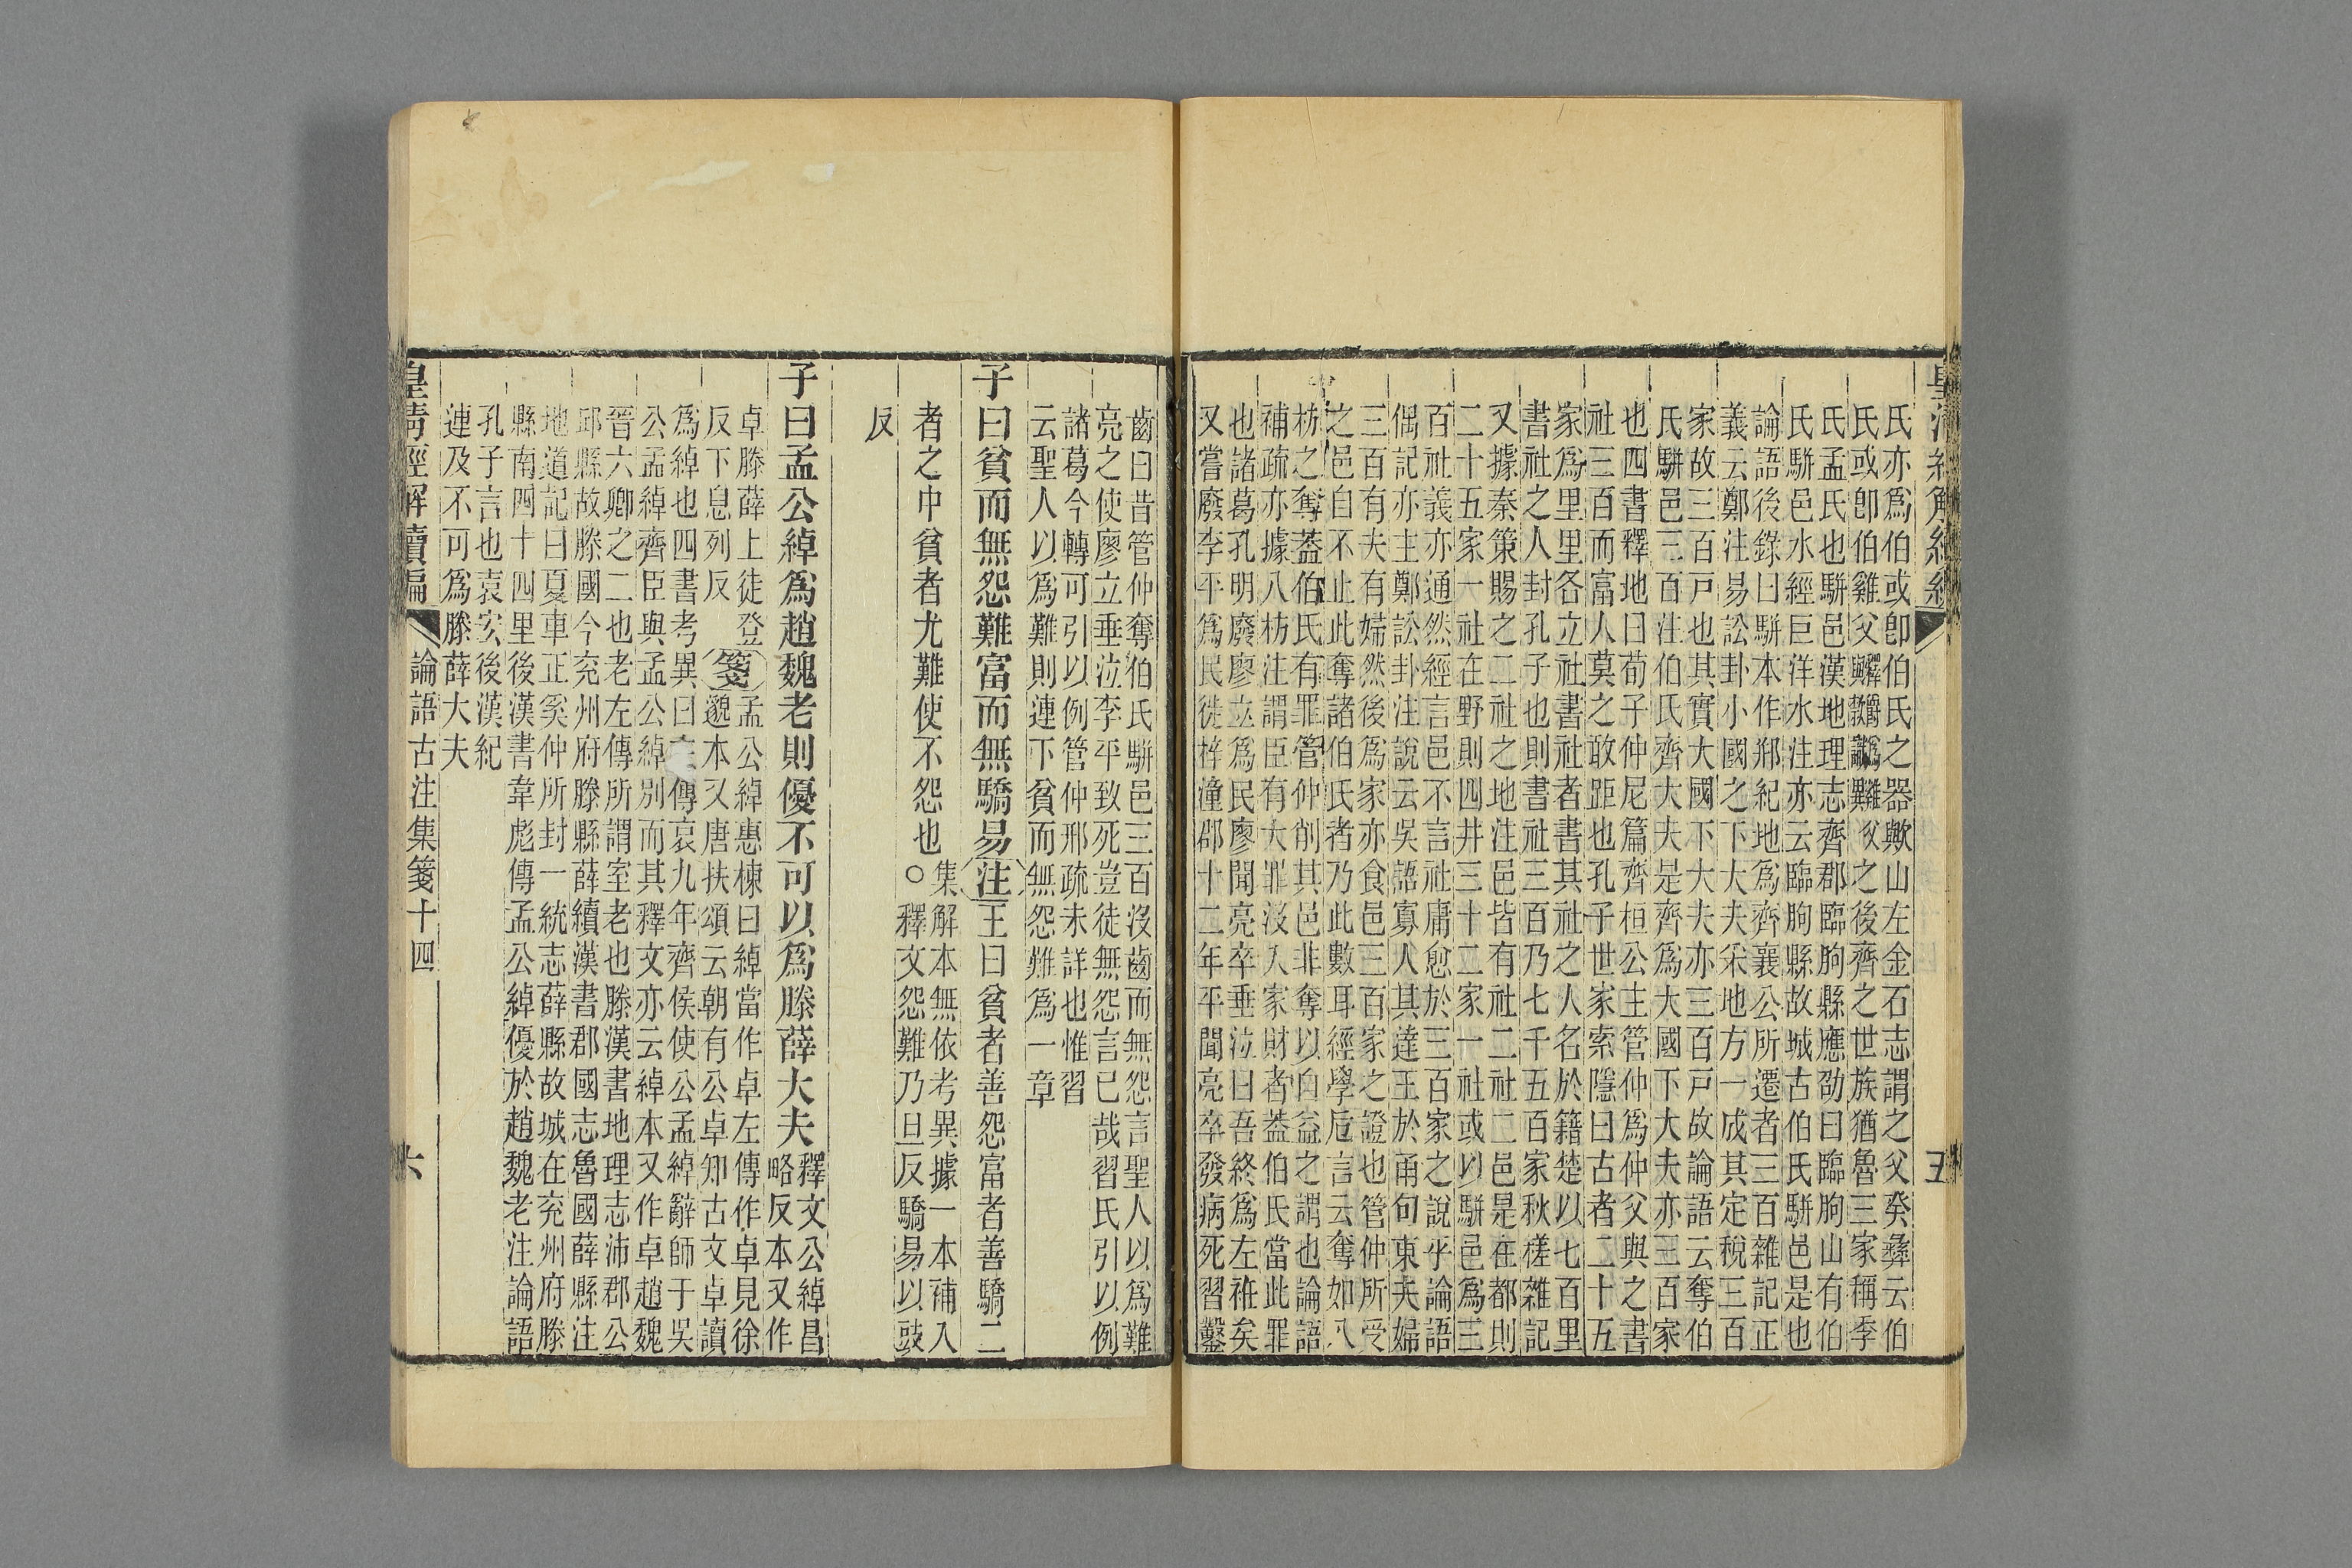 氏亦爲伯或卽伯氏之器歟山左金石志謂之父癸彝云伯
氏或卽伯雞父之後齊之世族猶魯三家稱季
氏孟氏也駢邑漢地理志齊郡臨朐縣應劭曰臨朐山有伯
氏駢邑水經巨洋水注亦云臨朐縣故城古伯氏駢邑是也
論語後錄曰駢本作郱紀地爲齊襄公所遷者三百雜記正
義云鄭注易訟卦小國之下大夫采地方一成其定稅三百
家故三百戸也其實大國下大夫亦三百戸故論語云奪伯
氏駢邑三百注伯氏齊大夫是齊爲大國下大夫亦三百家
也四書釋地曰荀子仲尼篇齊桓公主管仲爲仲父與之書
社三百而富人莫之敢距也孔子世家索隱曰古者二十五
家爲里里各立社書社者書其社之人名於籍楚以七百里
書社之人封孔子也則書社三百乃七千五百家秋槎雜記
又據秦策賜之二社之地注邑皆有社二社二邑是在都則
二十五家一社在野則四井三十二家一社或以駢邑爲三
百社義亦通然經言邑不言社庸愈於三百家之說乎論語
偶記亦主鄭訟卦注說云吳語寡人其達王於甬句東夫婦
三百有夫有婦然後爲家亦食邑三百家之證也管仲所受
之邑自不止此奪諸伯氏者乃此數耳經學卮言云奪如八
枋之奪蓋伯氏有罪管仲削其邑非奪以自益之謂也論語
補疏亦據八枋注謂臣有大罪沒入家財者蓋伯氏當此罪
也諸葛孔明廢廖立爲民廖聞亮卒垂泣曰吾終爲左衽矣
又嘗廢李平爲民徙梓潼郡十二年平聞亮卒發病死習鑿
五
齒曰昔管仲奪伯氏駢邑三百沒齒而無怨言聖人以爲難
亮之使廖立垂泣李平致死豈徒無怨言已哉習氏引以例
諸葛今轉可引以例管仲邢疏未詳也惟習
云聖人以爲難則連下貧而無怨難爲一章
子曰貧而無怨難富而無驕易注王曰貧者善怨富者善驕二
者之中貧者尤難使不怨也
集解本無依考異據一本補入
○釋文怨難乃旦反驕易以豉
反
子曰孟公綽爲趙魏老則優不可以爲滕薛大夫
釋文公綽昌
略反本又作
卓滕薛上徒登
反下息列反
箋
孟公綽惠棟曰綽當作卓左傳作卓見徐
邈本又唐扶頌云朝有公卓知古文卓讀
爲綽也四書考異曰傳哀九年齊侯使公孟綽辭師于吳
公孟綽齊臣與孟公綽別而其釋文亦云綽本又作卓趙魏
晉六卿之二也老左傳所謂室老也滕漢書地理志沛郡公
邱縣故滕國今兗州府滕縣薛續漢書郡國志魯國薛縣注
地道記曰夏車正奚仲所封一統志薛縣故城在兗州府滕
縣南四十四里後漢書韋彪傳孟公綽優於趙魏老注論語
孔子言也袁宏後漢紀
連及不可爲滕薛大夫
皇清經解續編
論語古注集箋十四
六